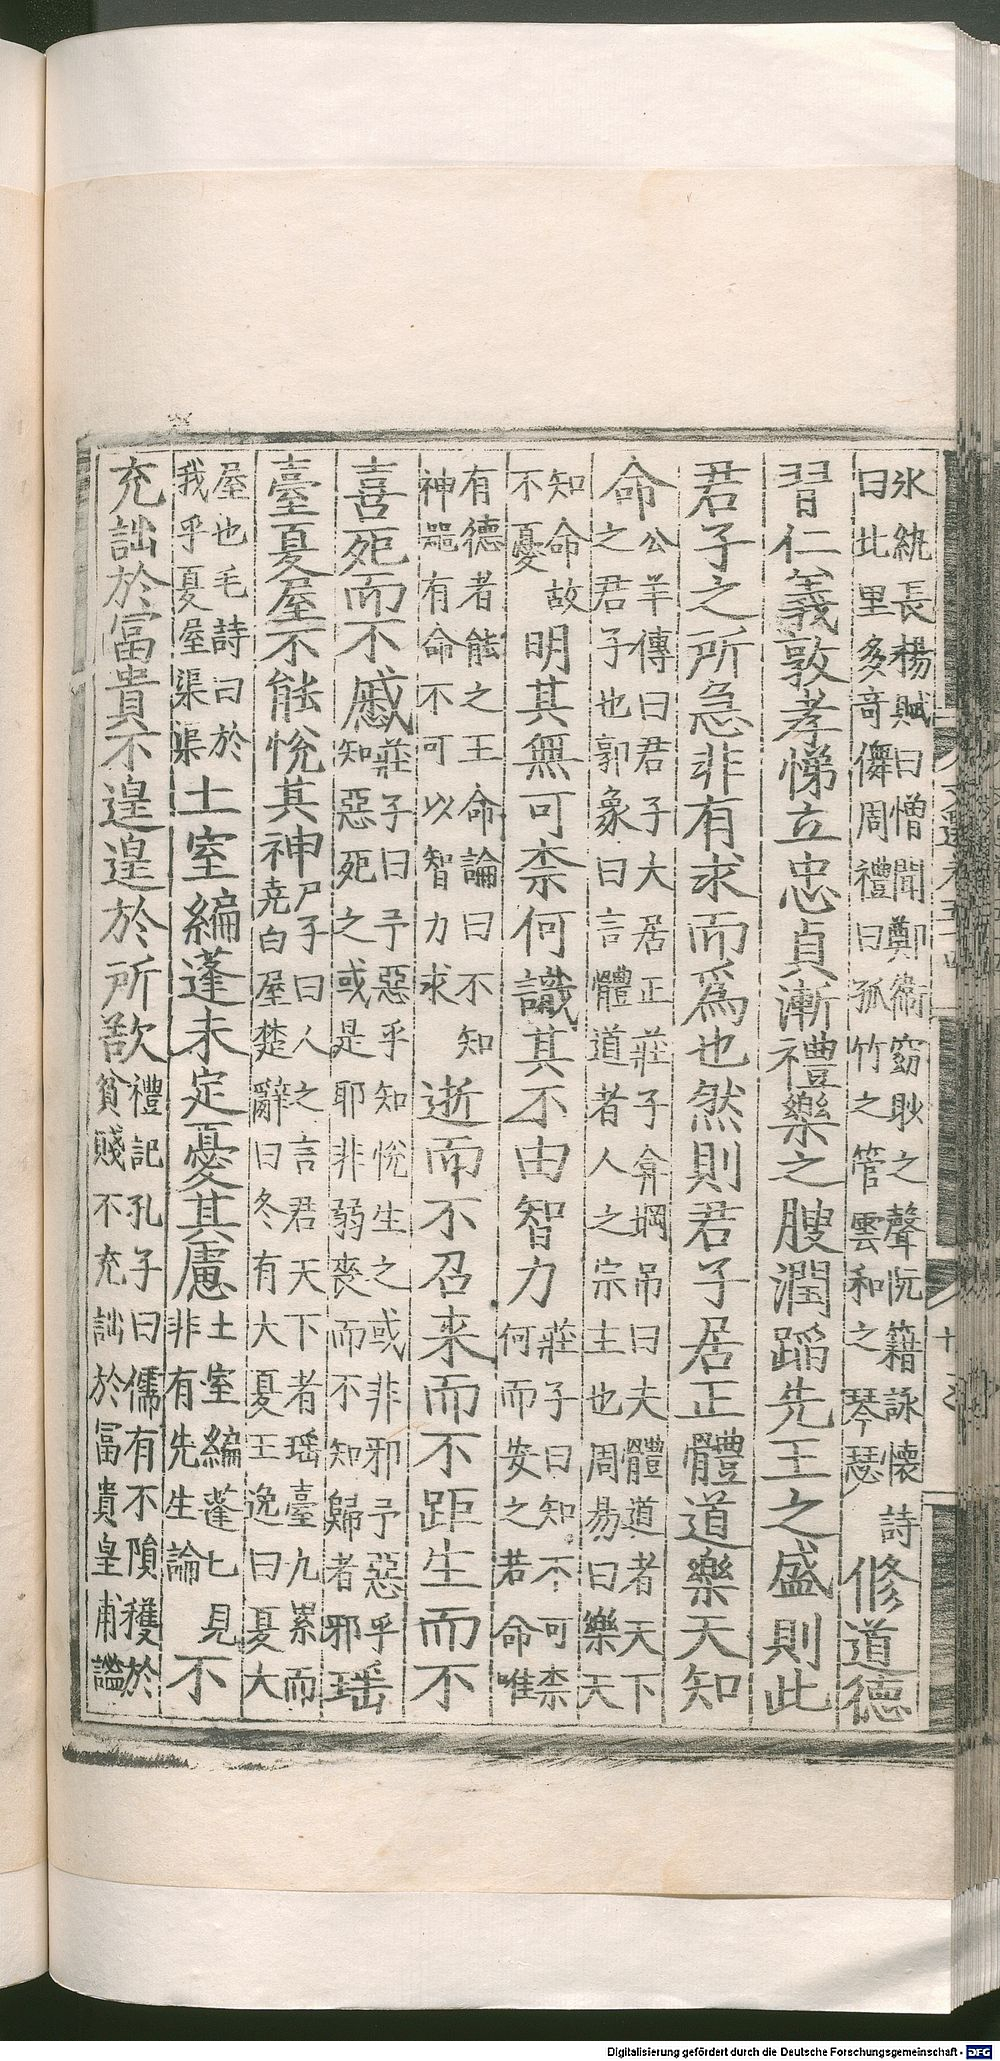 氷紈長楊賦曰憎聞鄭衞窈眇之聲阮籍詠懷詩
曰北里多奇儛周禮曰孤竹之管雲和之琴瑟
修道德
習仁義敦孝悌立忠貞漸禮樂之腴潤蹈先王之盛則此
君子之所急非有求而爲也然則君子居正體道樂天知
命
公羊傳曰君子大居正莊子弇堈吊曰夫體道者天下
之君子也郭象曰言體道者人之宗主也周易曰樂天
知命故
不憂
明其無可柰何識其不由智力
莊子曰知不可柰
何而安之若命唯
有德者能之王命論曰不知
神器有命不可以智力求
逝而不召来而不距生而不
喜死而不慼
莊子曰予惡乎知悅生之或非邪予惡乎
知惡死之或是耶非弱喪而不知歸者邪
瑶
臺夏屋不能悅其神
尸子曰人之言君天下者瑶臺九累而
堯白屋楚辭曰冬有大夏王逸曰夏大
屋也毛詩曰於
我乎夏屋渠渠
土室編蓬未定憂其慮
土室編蓬已見
非有先生論
不
充詘於富貴不遑遑於所欲
禮記孔子曰儒有不隕穫於
貧賤不充詘於冨貴皇甫謐
Digitalisierung gefördert durch die Deutsche Forschungsgemeinschaft - DFG